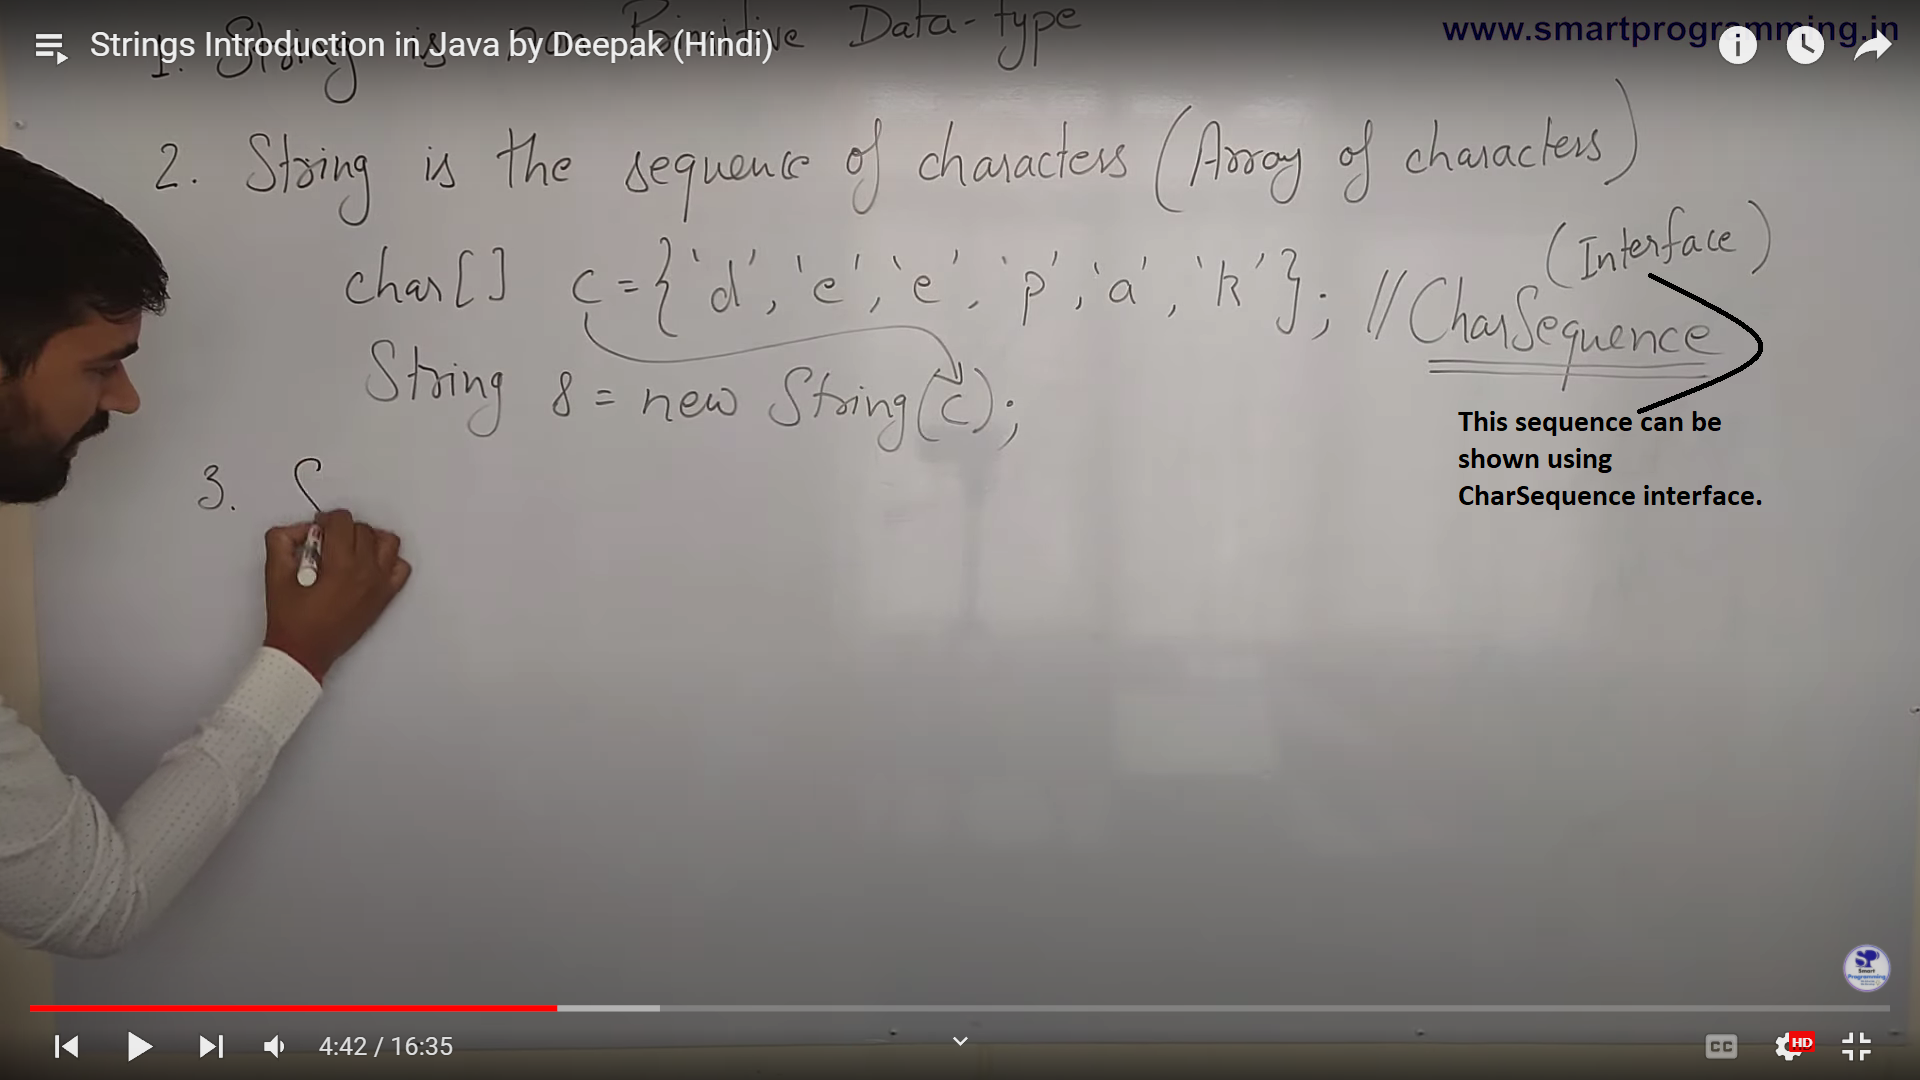 Strings Introduction in Java by Deepak (Hindi)
www.smartprogramming.in
1. String is non-Primitive Data-type
2. String is the sequence of characters (Array of characters)
(Interface)
char[] c = {'d', 'e', 'e', 'p', 'a', 'k'}; //CharSequence
String s = new String(c);
This sequence can be
shown using
CharSequence interface.
3. S
SP
Smart
Programming
4:42 / 16:35
CC
HD